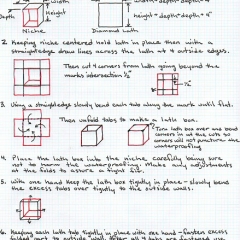 Width
Height
Depth
Niche
width = depth = 4"
height = depth = depth = 4"
Diamond Lath
2. Keeping niche centered hold lath in place then with a
straightedge draw lines across the lath at 4 outside edges.
Then cut 4 corners from lath going beyond the
marks intersection 1/2"
3. Using a straightedge slowly bend each tab along the mark until flat.
Then unfold tabs to make a lath box.
Turn lath box over and bend
corners in at the cuts so
corners will not puncture the
waterproofing
4. Place the lath box into the niche carefully being sure
not to harm the waterproofing. Make any adjustments
at the folds to assure a tight fit.
5. With one hand keep the lath box tightly in place - slowly bend
the excess tabs over tightly to the outside walls.
6. Keeping each lath tab tightly in place with one hand - fasten excess